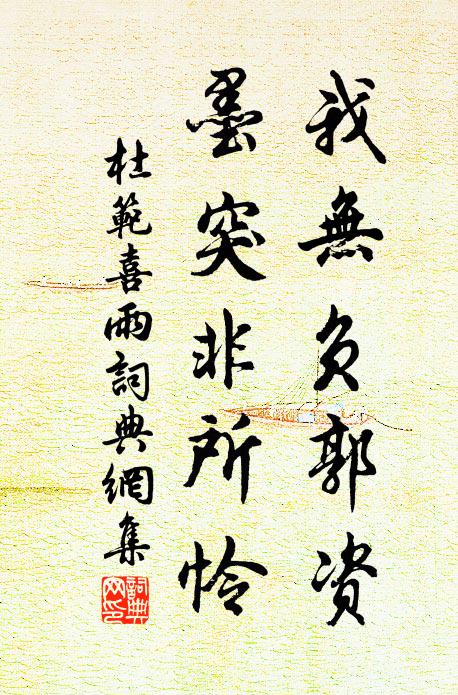 我無負郭資
墨突非所怜
杜範喜雨詞典網集
詞典網印